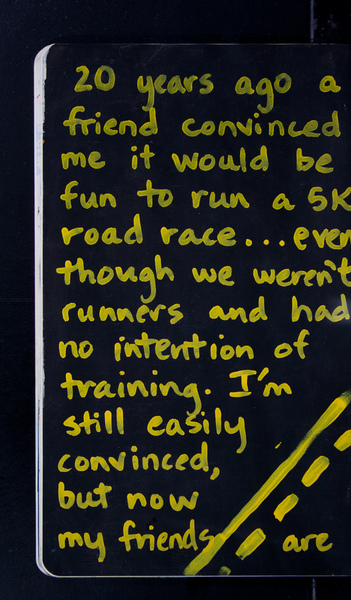 20 years ago a
friend convinced
me it would be
fun to run a 5K
road race...even
though we weren't
runners and had
no intention of
training. I'm
still easily
convinced,
but now
my friends are